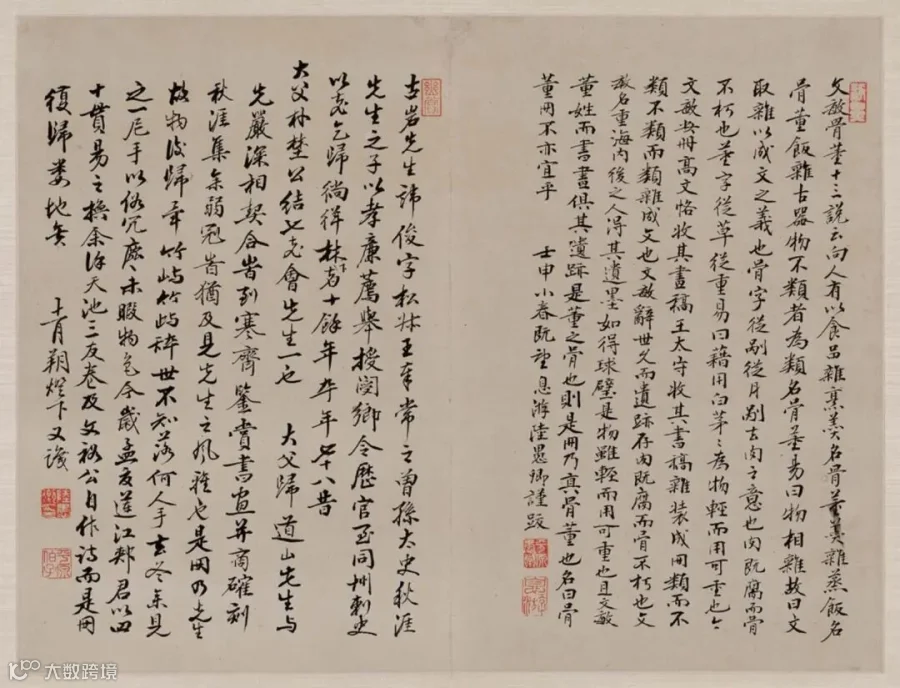 文敏骨董十三說云向人有以食品雜烹羹名骨董羹雜蒸飯名
骨董飯雜古器物不類者為類名骨董易曰物相雜故曰文
取雜以成文之義也骨字從剮從月剮去肉之意也肉既腐而骨
不朽也董字從草從重易曰藉用白茅〻為物輕而用可重也今
文敏冊高文恪收其畫稿王太守收其書稿雜裝成冊類而不
類不類而類雜成文也文敏辭世久而遺跡存肉既腐而骨不朽也文
敏名重海內後之人得其遺墨如得球璧是物雖輕而用可重也且文敏
董姓而書畫俱其遺跡是董之骨也則是冊乃真骨董也名曰骨
董冊不亦宜乎 壬申小春既望息游陸愚卿謹跋
古岩先生諱俊字松牀王奉常之曾孫太史秋涯
先生之子以孝廉薦舉授閿鄉令歷官至同州刺史
以老乞歸徜徉林下十餘年卒年七十八昔
大父朴埜公結七老會先生一也 大父歸道山先生與
先嚴深相契合時到寒齋鑒賞書畫并商確刻
秋涯集余弱冠時猶及見先生之風雅也是冊乃先生
故物後歸竹嶼竹嶼辭世不知落何人手去冬余見
之一尼手以俗冗未暇物色今歲孟夏道江君以四
十貫易之換余天池三友卷及文裕公自作詩而是冊
復歸婁地矣 十一月朔燈下又識
大数跨境